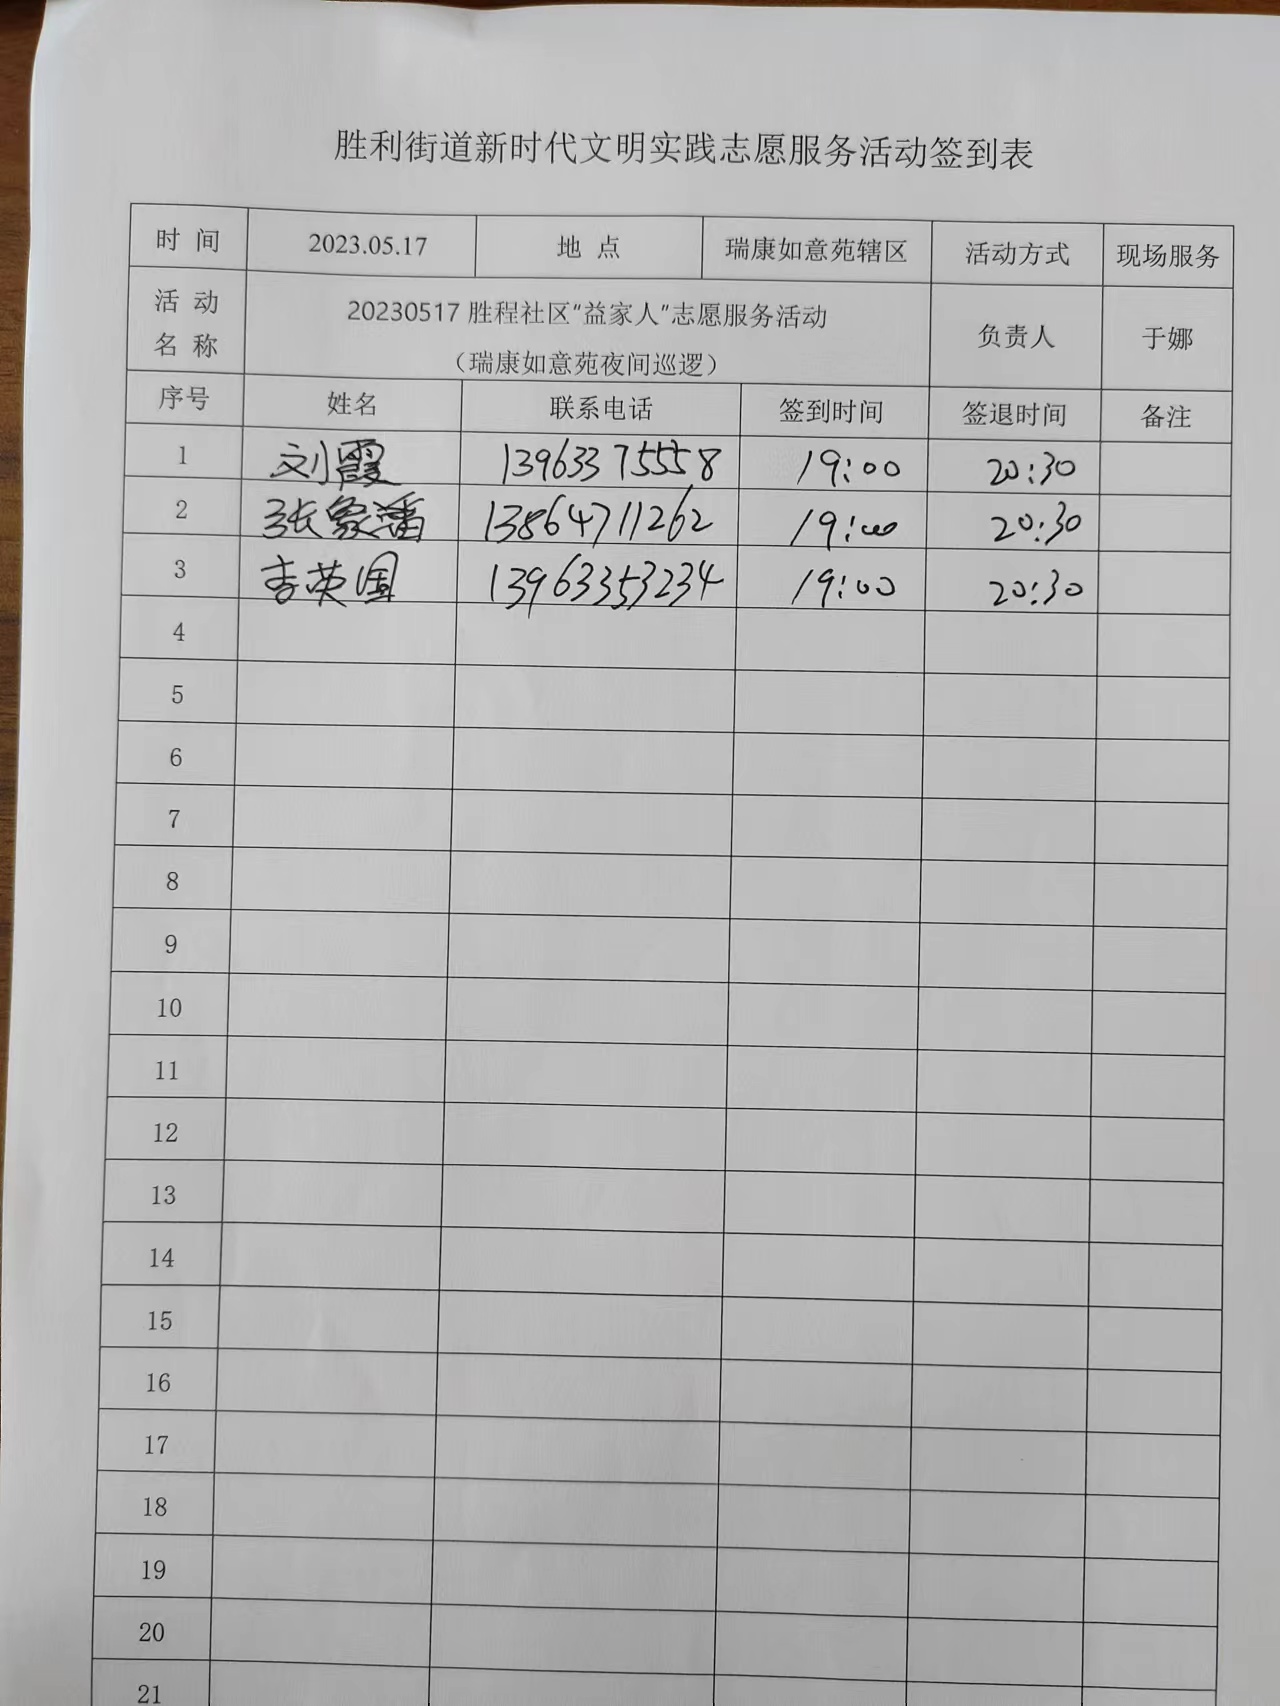 胜利街道新时代文明实践志愿服务活动签到表
时 间 2023.05.17 地 点 瑞康如意苑辖区 活动方式 现场服务
活 动 名 称 20230517 胜程社区“益家人”志愿服务活动 负责人 于娜
（瑞康如意苑夜间巡逻）
序号 姓名 联系电话 签到时间 签退时间 备注
1 刘霞 13963375558 19:00 20:30
2 张象潘 13864711262 19:00 20:30
3 李英国 13963353234 19:00 20:30
4
5
6
7
8
9
10
11
12
13
14
15
16
17
18
19
20
21